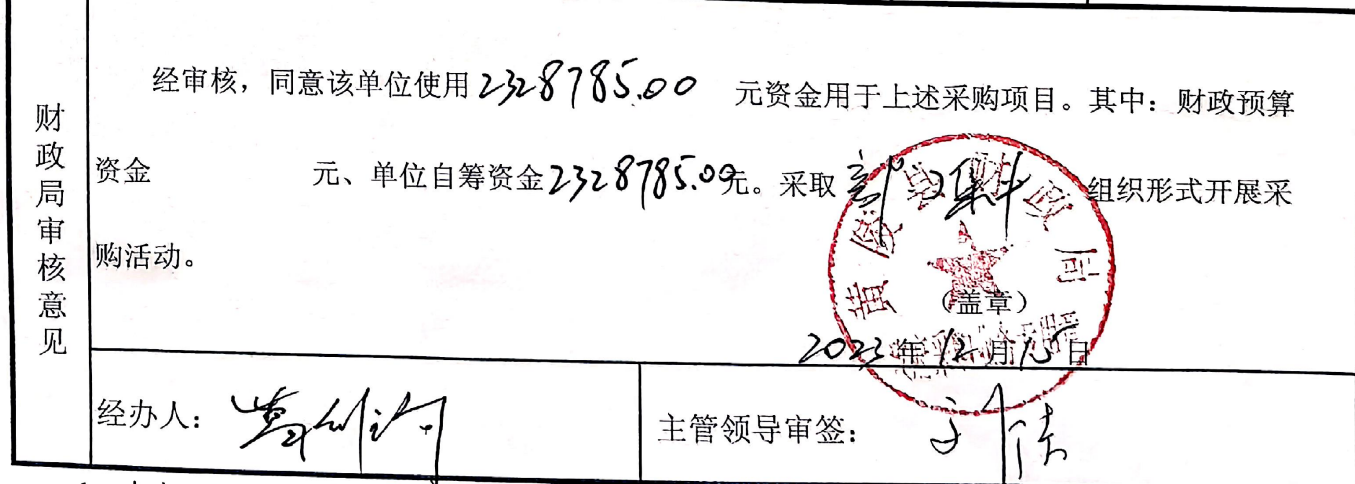 财政局审核意见
经审核，同意该单位使用2328785.00 元资金用于上述采购项目。其中：财政预算
资金 元、单位自筹资金2328785.00元。采取部门集中组织形式开展采
购活动。
黄陵县财政局
（盖章）
2023年12月15日
经办人：
主管领导审签：